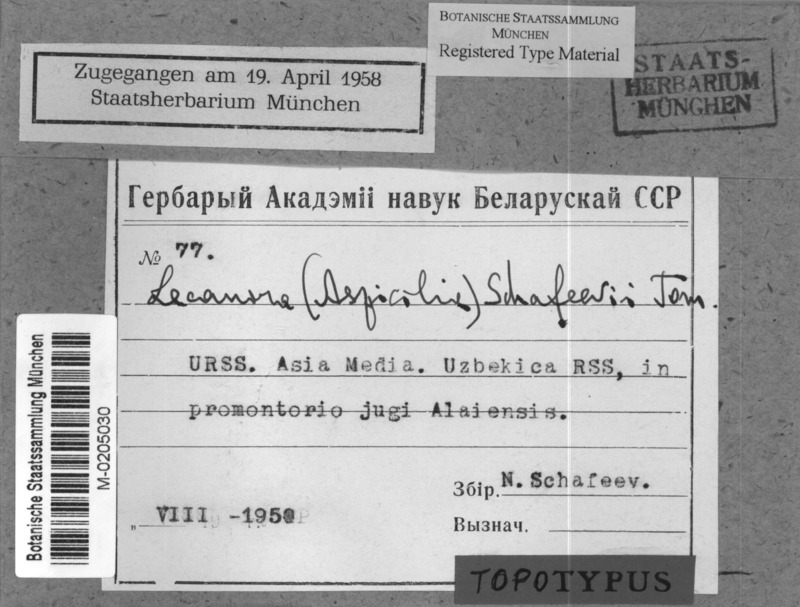 BOTANISCHE STAATSSAMMLUNG
MÜNCHEN
Registered Type Material
Zugegangen am 19. April 1958
Staatsherbarium München
STAATS-
HERBARIUM
MÜNCHEN
Гербарый Акадэміі навук Беларускай ССР
№ 77.
Lecanora (Aspicilia) Schafeevii Tom.
URSS. Asia Media. Uzbekica RSS, in
promontorio jugi Alaiensis.
Збір. N. Schafeev.
„ VIII -1950
Вызнач.
TOPOTYPUS
Botanische Staatssammlung München
M-0205030